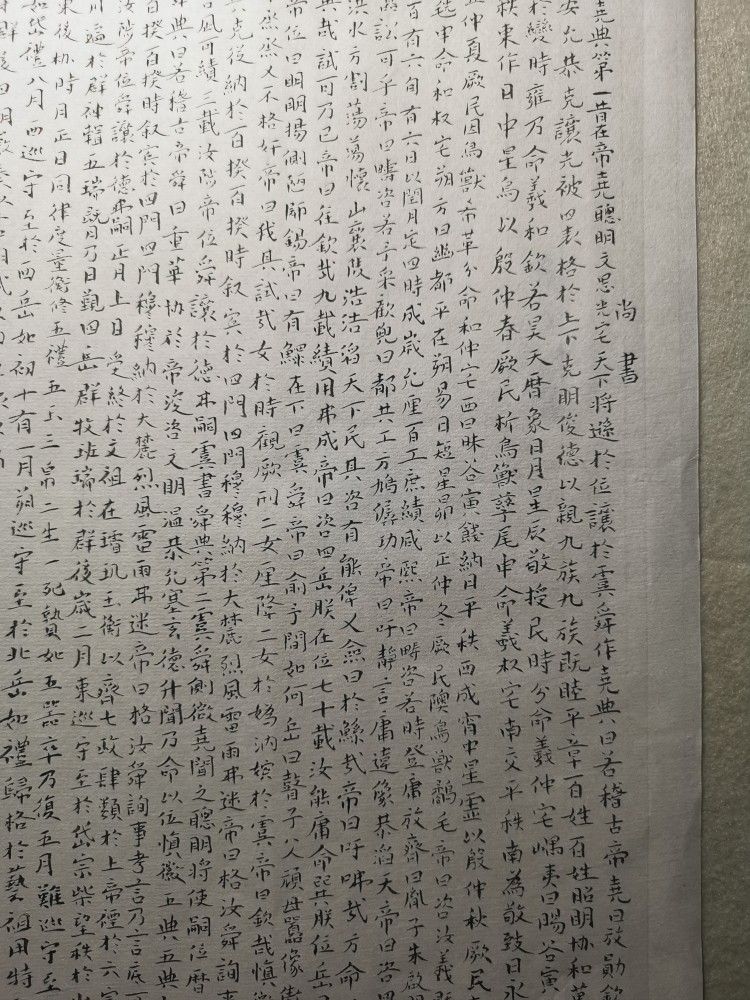 尚書
堯典第一昔在帝堯聰明文思光宅天下將遜於位讓於虞舜作堯典曰若稽古帝堯曰放勛欽
安允恭克讓光被四表格於上下克明俊德以親九族九族既睦平章百姓百姓昭明協和萬
於變時雍乃命羲和欽若昊天曆象日月星辰敬授民時分命羲仲宅嵎夷曰暘谷寅
秩東作日中星鳥以殷仲春厥民析鳥獸孳尾申命羲叔宅南交平秩南為敬致日永
正仲夏厥民因鳥獸希革分命和仲宅西曰昧谷寅餞納日平秩西成宵中星虛以殷仲秋厥民
毨申命和叔宅朔方曰幽都平在朔易日短星昴以正仲冬厥民隩鳥獸鷸毛帝曰咨汝羲
百有六旬有六日以閏月定四時成歲允厘百工庶績咸熙帝曰疇咨若時登庸放齊曰胤子朱啟明
嚚訟可乎帝曰疇咨若予采歡兜曰都共工方鳩僝功帝曰吁靜言庸違像恭滔天帝曰咨四
洪水方割蕩蕩懷山襄陵浩浩滔天下民其咨有能俾乂僉曰於鯀哉帝曰吁咈哉方命
異哉試可乃已帝曰往欽哉九載績用弗成帝曰咨四岳朕在位七十載汝能庸命巽朕位岳曰
帝位曰明明揚側陋師錫帝曰有鰥在下曰虞舜帝曰俞予聞如何岳曰瞽子父頑母嚚像傲
烝烝乂不格奸帝曰我其試哉女於時觀厥刑二女厘降二女於媯汭嬪於虞帝曰欽哉慎徽
克從納於百揆百揆時敘賓於四門四門穆穆納於大麓烈風雷雨弗迷帝曰格汝舜詢事
言厎可績三載汝陟帝位舜讓於德弗嗣虞書舜典第二虞舜側微堯聞之聰明將使嗣位曆
舜典曰若稽古帝舜曰重華協於帝浚咨文明溫恭允塞玄德升聞乃命以位慎徽五典五典
百揆百揆時敘賓於四門四門穆穆納於大麓烈風雷雨弗迷帝曰格汝舜詢事考言乃言厎可
汝陟帝位舜讓於德弗嗣正月上日受終於文祖在璿璣玉衡以齊七政肆類於上帝禋於六宗
川遍於群神輯五瑞既月乃日覲四岳群牧班瑞於群後歲二月東巡守至於岱宗柴望秩於山
東後協時月正日同律度量衡修五禮五玉三帛二生一死贄如五器卒乃復五月巡守至
如岱禮八月西巡守至於四岳如初十有一月朔巡守至於北岳如禮歸格於藝祖用特
群後四朝